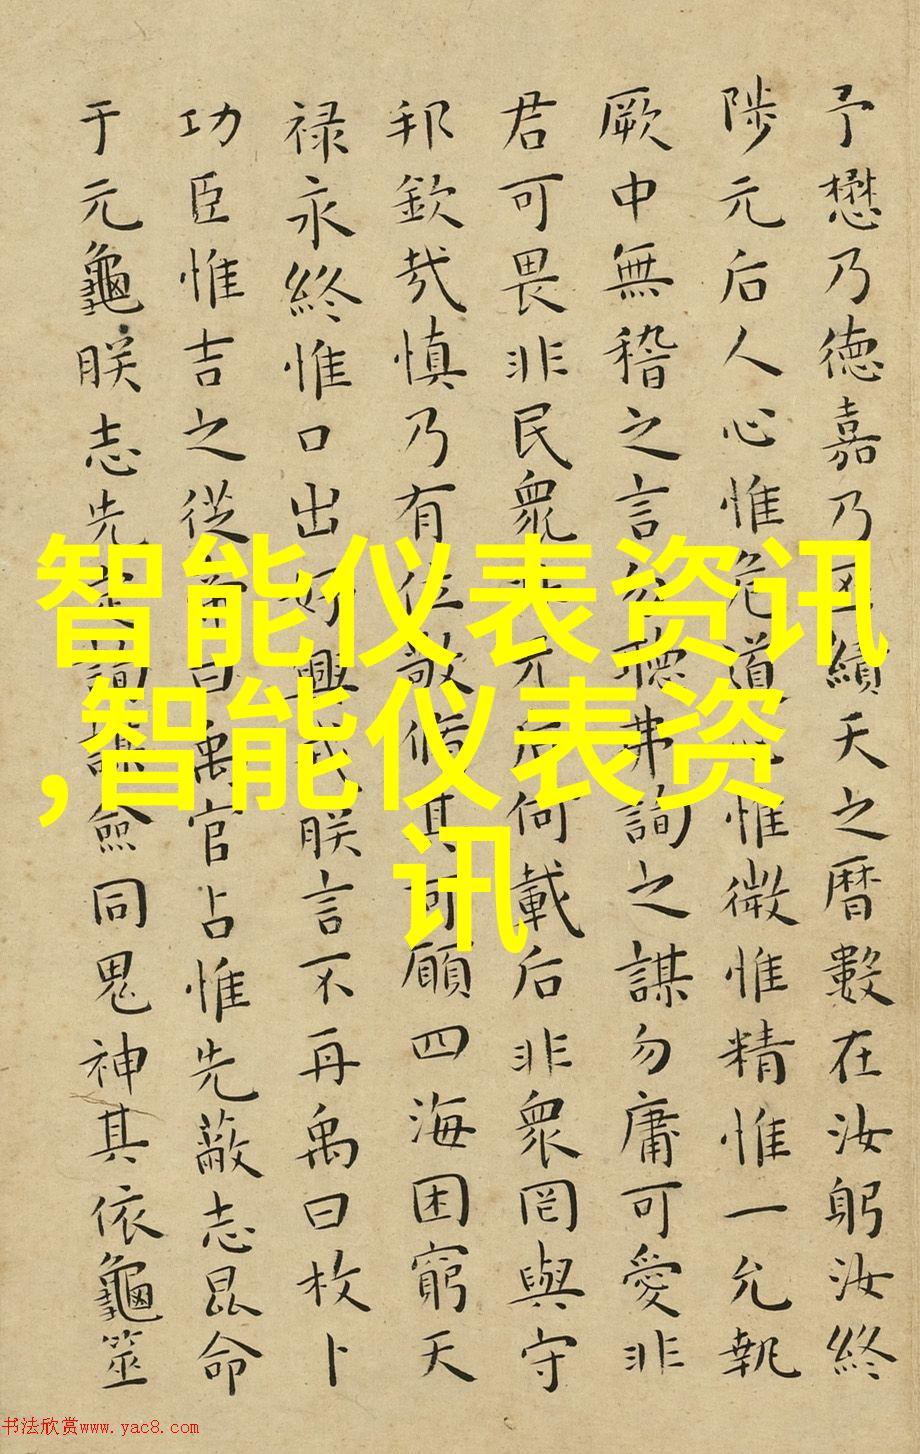 予懋乃德嘉乃丕績天之曆數在汝躬汝終
陟元后人心惟危道惟微惟精惟一允執
厥中無稽之言勿聽弗詢之謀勿庸可愛非
君可畏非民衆元后何載后非衆罔與守
邦欽哉慎乃有位敬脩其可願四海困窮天
禄永終惟口出好興戎朕言不再禹曰枚卜
功臣惟吉之從帝曰禹官占惟先蔽志昆命
于元龜朕志先定詢謀僉同鬼神其依龜筮
智能仪表资讯
,智能仪表资
讯
书法欣赏www.yac8.com